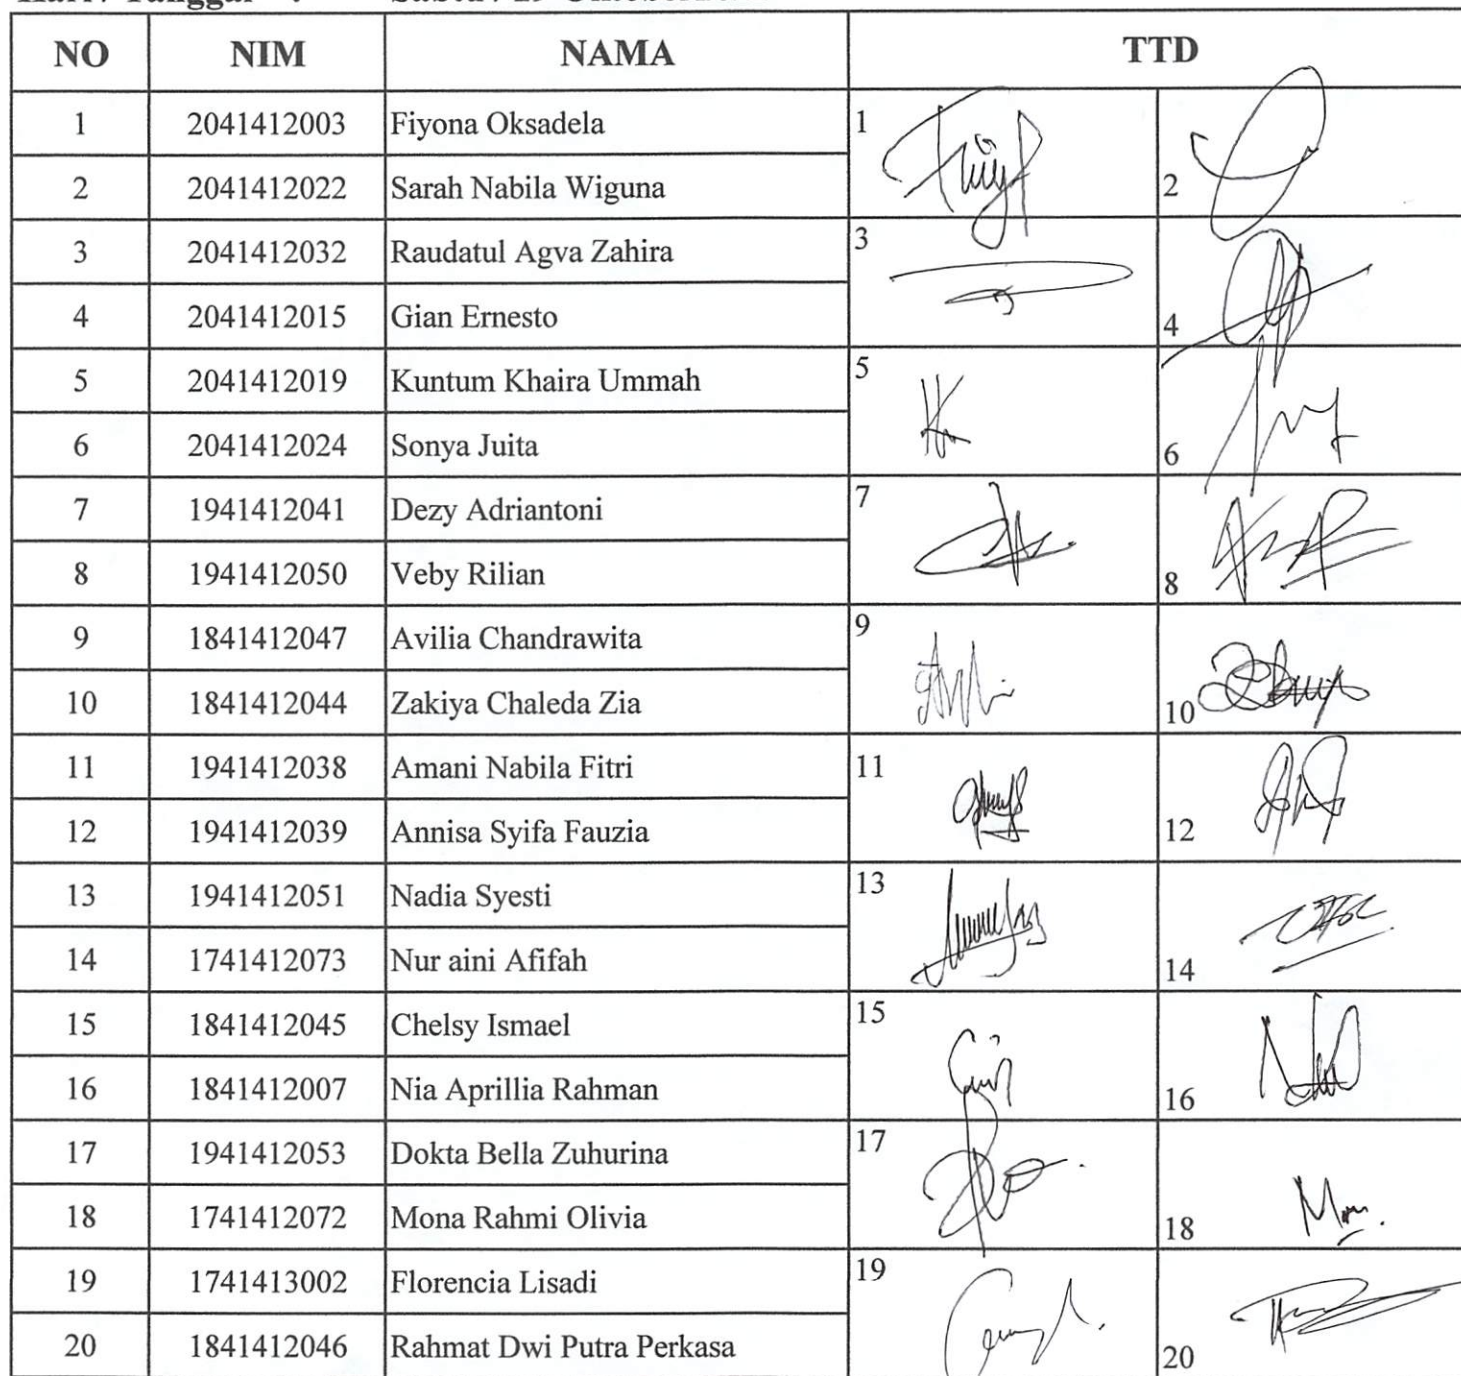 NO NIM NAMA TTD
1 2041412003 Fiyona Oksadela 1
2 2041412022 Sarah Nabila Wiguna 2
3 2041412032 Raudatul Agva Zahira 3
4 2041412015 Gian Ernesto 4
5 2041412019 Kuntum Khaira Ummah 5
6 2041412024 Sonya Juita 6
7 1941412041 Dezy Adriantoni 7
8 1941412050 Veby Rilian 8
9 1841412047 Avilia Chandrawita 9
10 1841412044 Zakiya Chaleda Zia 10
11 1941412038 Amani Nabila Fitri 11
12 1941412039 Annisa Syifa Fauzia 12
13 1941412051 Nadia Syesti 13
14 1741412073 Nur aini Afifah 14
15 1841412045 Chelsy Ismael 15
16 1841412007 Nia Aprillia Rahman 16
17 1941412053 Dokta Bella Zuhurina 17
18 1741412072 Mona Rahmi Olivia 18
19 1741413002 Florencia Lisadi 19
20 1841412046 Rahmat Dwi Putra Perkasa 20